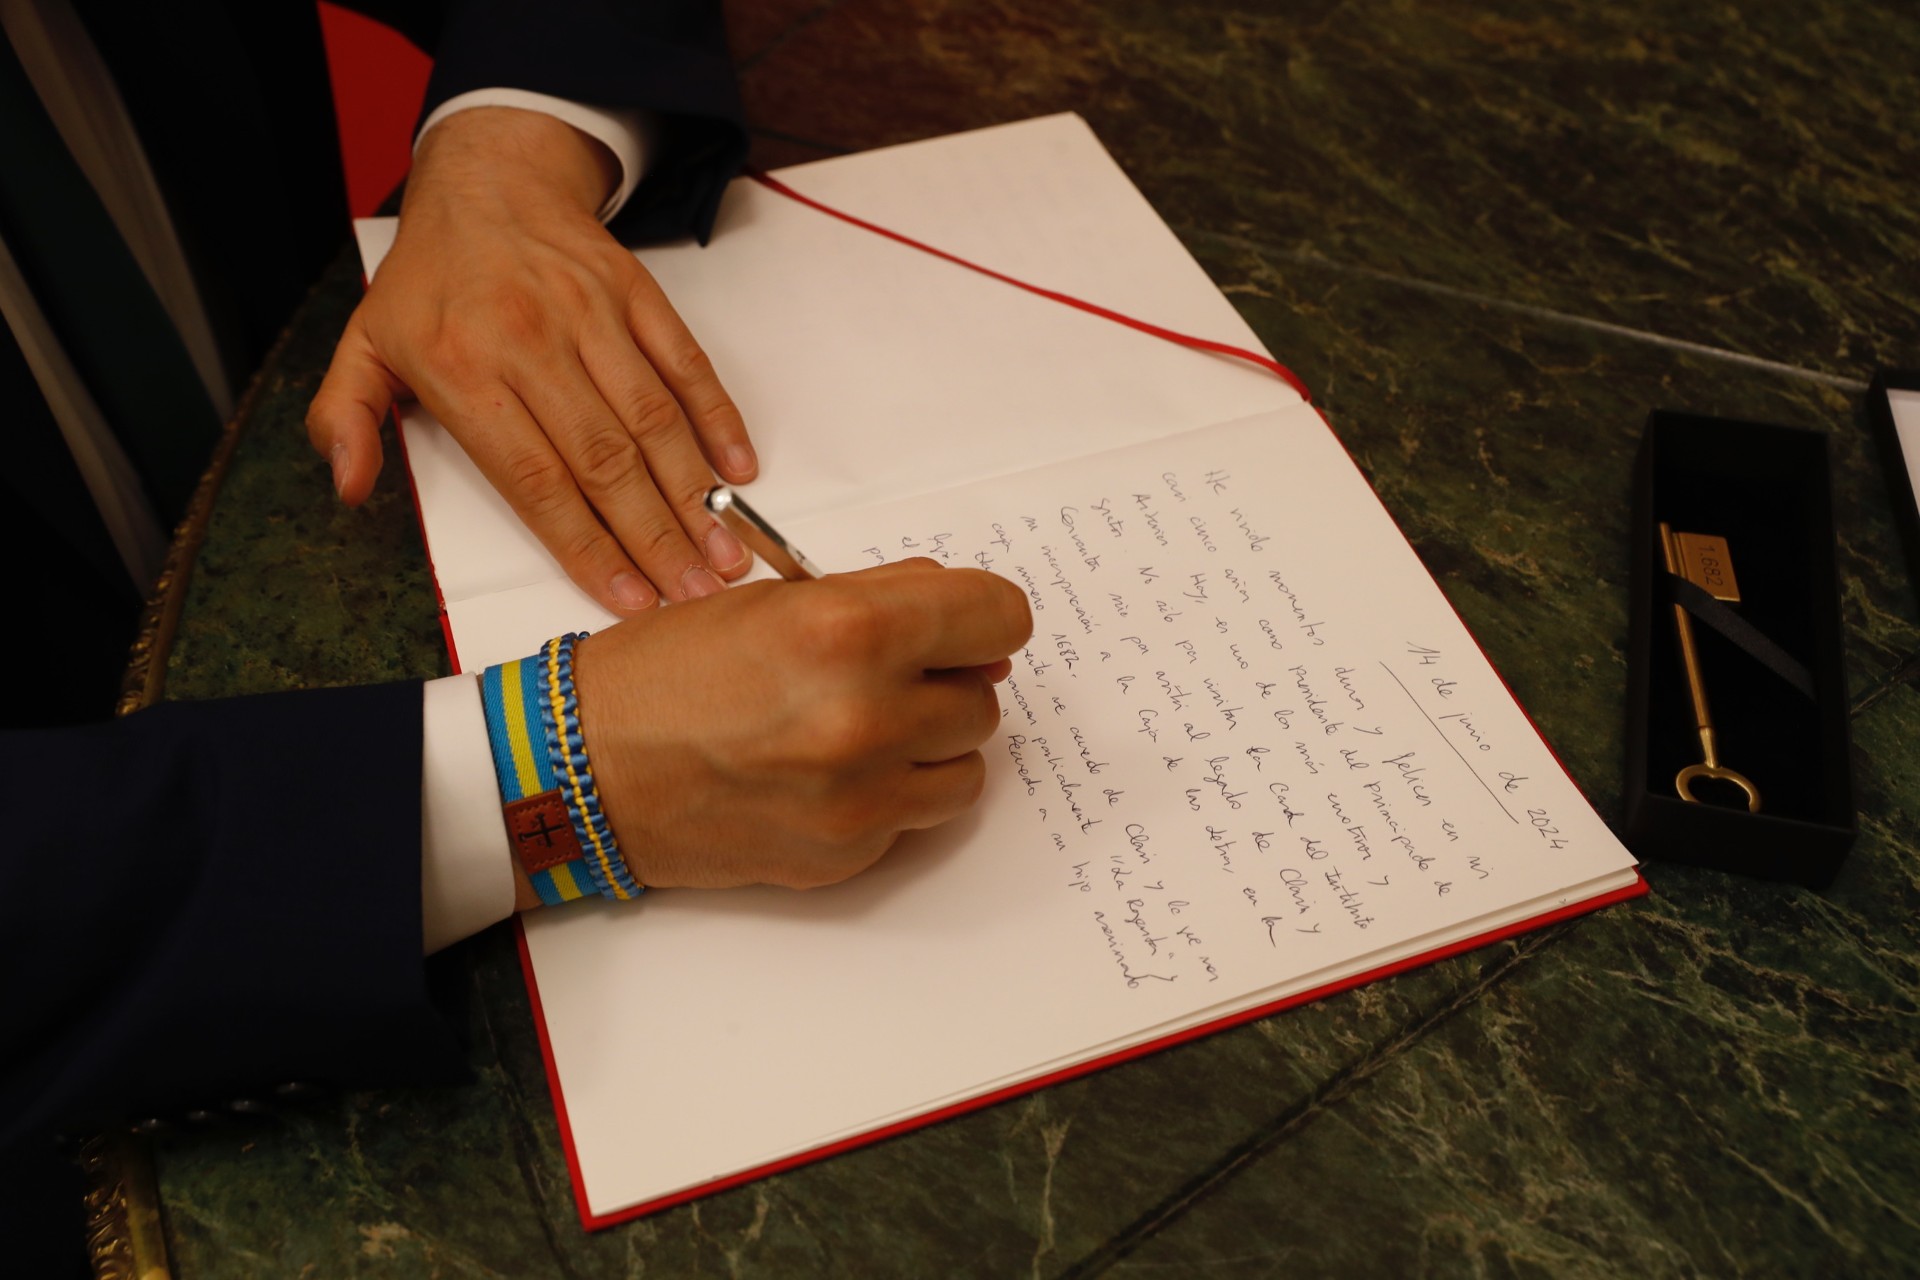 14 de junio de 2024
He vivido momentos duros y felices en mi
casi cinco años como presidente del principado de
Asturias. Hoy, es uno de los más emotivos y
gratos. No sólo por visitar la Casa del Instituto
Cervantes sino por asistir al legado de Clarín y
su incorporación a la Caja de las Letras, en la
caja número 1682.
me acuerdo de Clarín y lo que nos
parcialmente "La Regenta" y
Recuerdo a su hijo asesinado
el
1.682